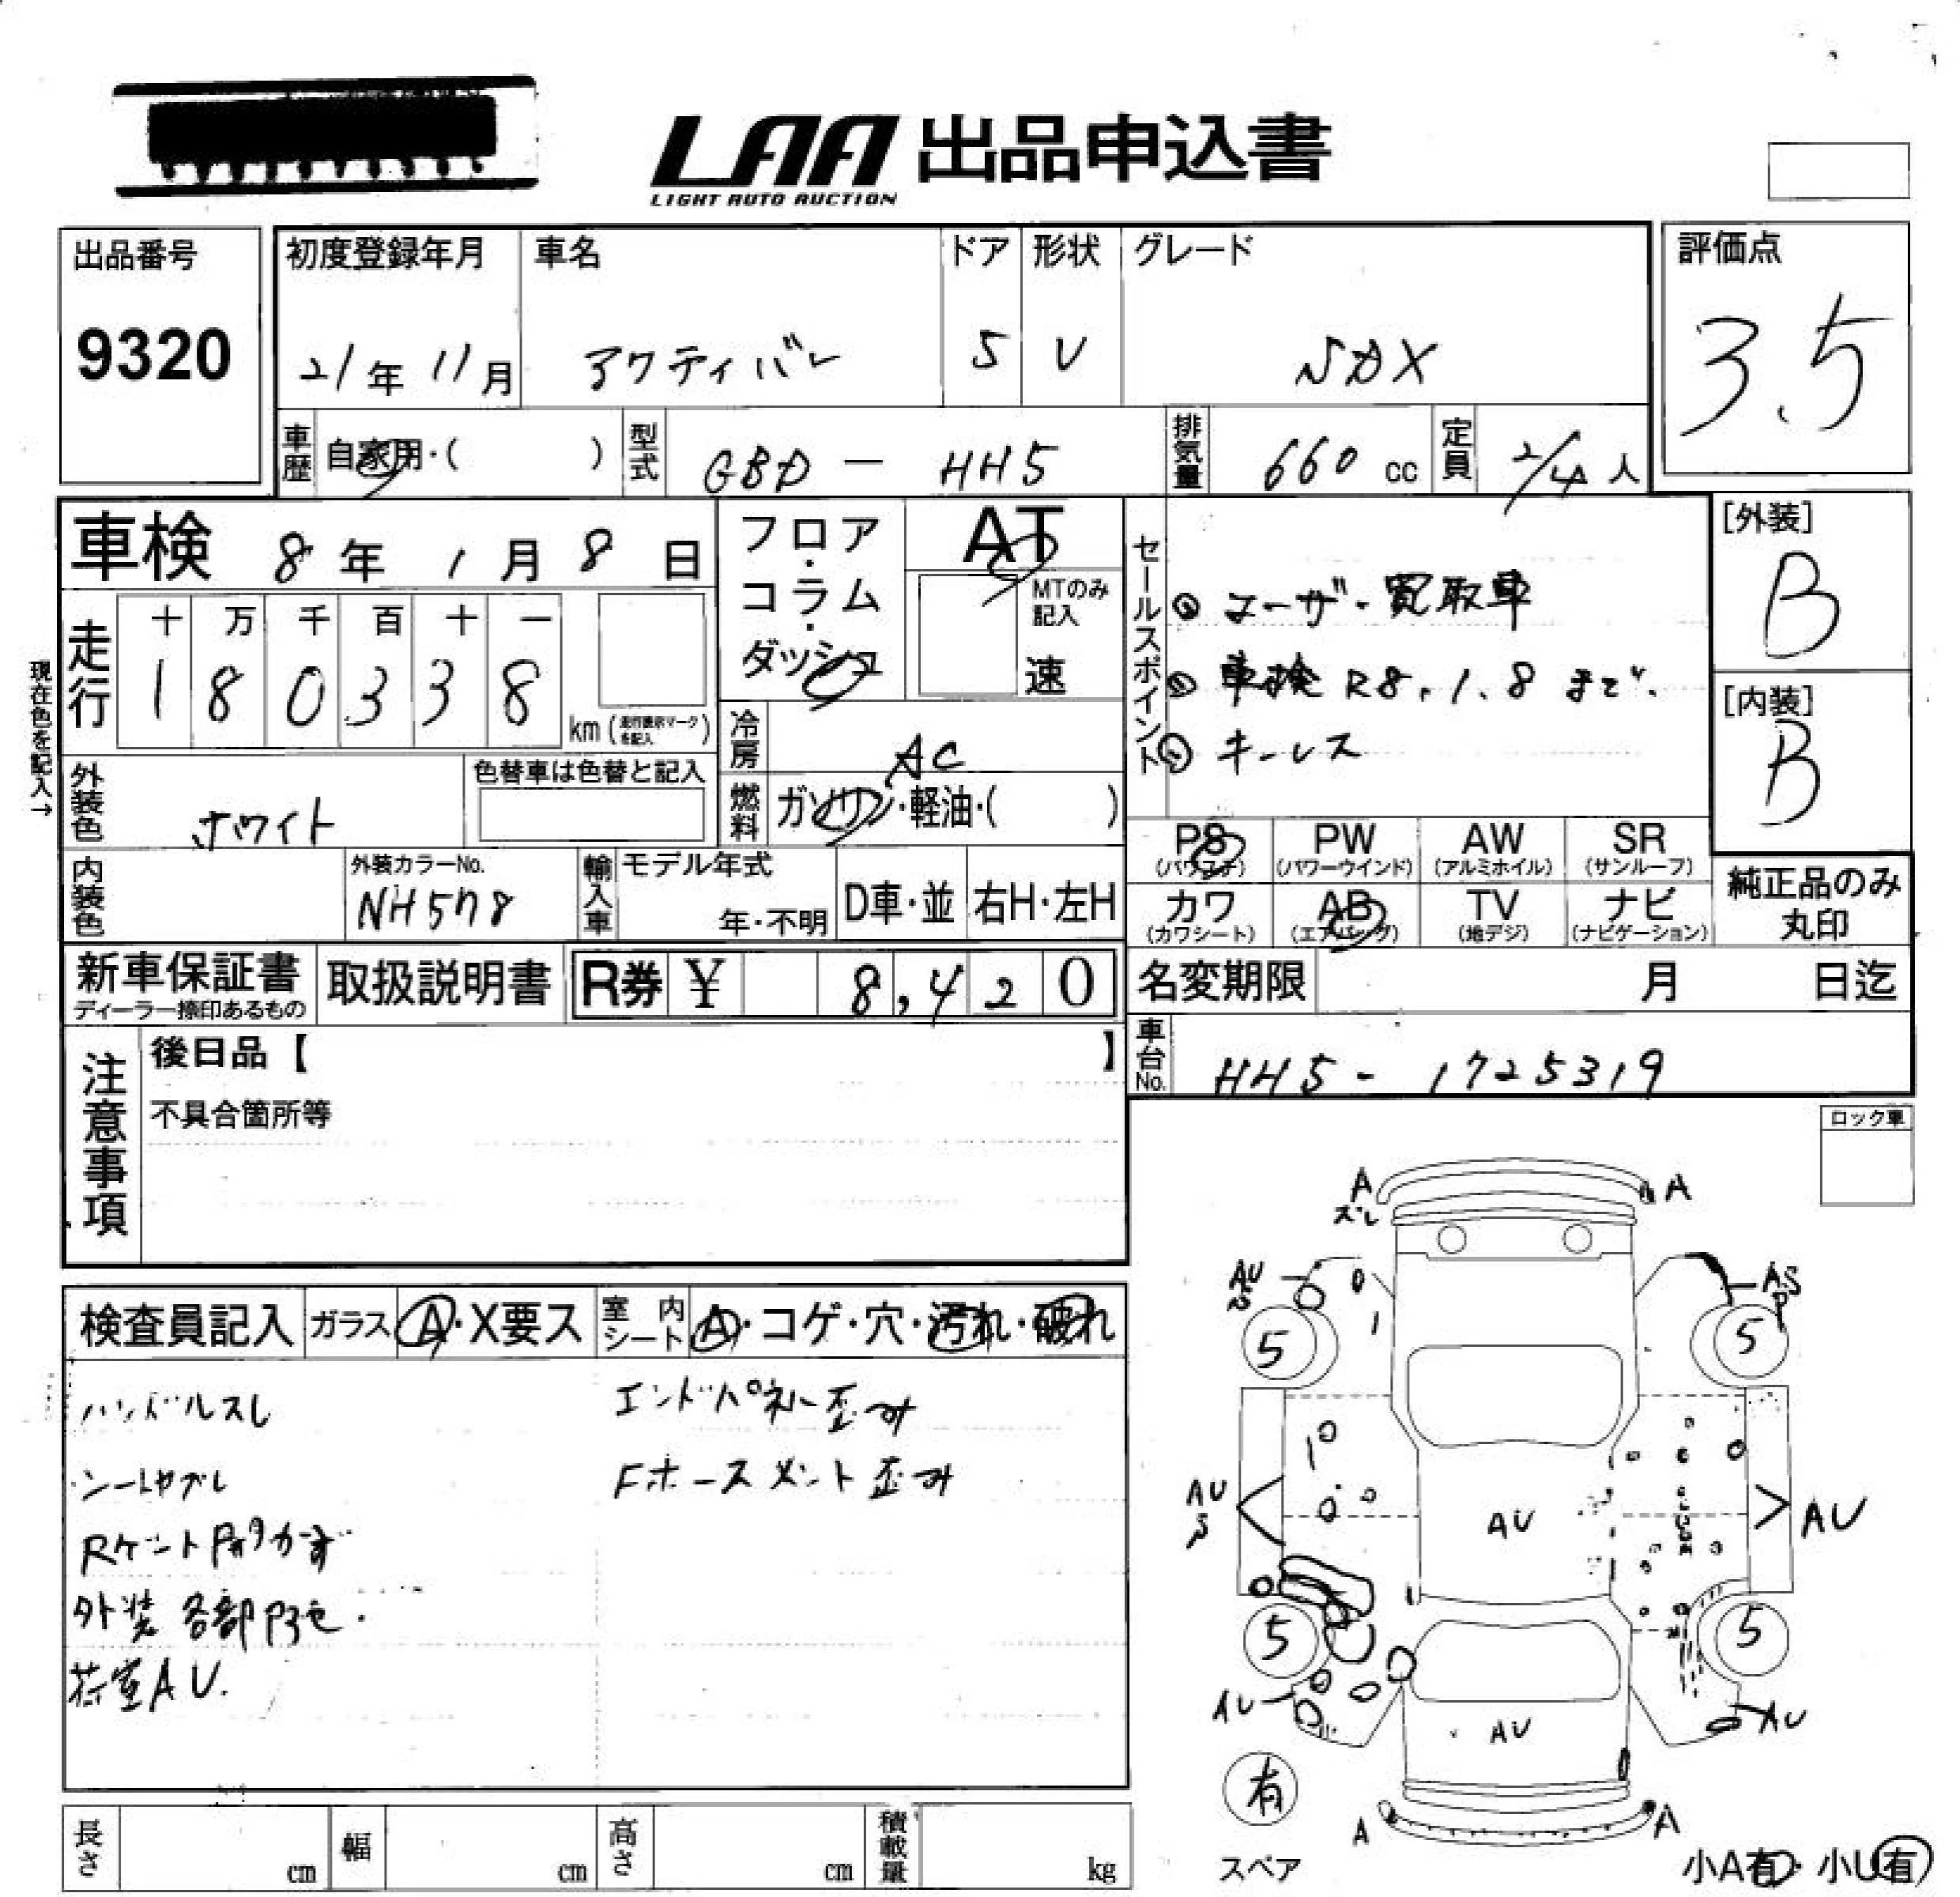 LAA 出品申込書
LIGHT AUTO AUCTION
出品番号
9320
初度登録年月
21年11月
車名
アクティバン
ドア
5
形状
V
グレード
SDX
評価点
3.5
車歴
自家用・( )
型式
GBD - HH5
排気量
660 cc
定員
2/4 人
車検 8年1月8日
フロア・コラム・ダッシュ
AT
MTのみ記入
速
セールスポイント
ユーザー買取車
車検R8.1.8まで.
キーレス
[外装]
B
[内装]
B
現在色を記入→
走行
十 万 千 百 十 一
1 8 0 3 3 8
km (走行表示マークを記入)
冷房
AC
燃料
ガソリン・軽油・( )
外装色
ホワイト
色替車は色替と記入
内装色
外装カラーNo.
NH578
輸入車
モデル年式
年・不明
D車・並
右H・左H
PS (パワステ)
PW (パワーウインド)
AW (アルミホイル)
SR (サンルーフ)
カワ (カワシート)
AB (エアバッグ)
TV (地デジ)
ナビ (ナビゲーション)
純正品のみ丸印
新車保証書
ディーラー捺印あるもの
取扱説明書
R券 ¥ 8,420
名変期限 月 日迄
車台No.
HH5 - 1725319
注意事項
後日品【 】
不具合箇所等
ロック車
検査員記入
ガラス A・X要ス
室内シート A・コゲ・穴・汚れ・破れ
ハンドルスレ
エンドパネル歪み
シートヤブレ
Fホースメント歪み
Rゲート開かず
外装 各部凹色.
荷室AU.
A
ズレ
A
AU
S
AS
P
5
5
AU
S
AU
AU
5
5
AU
AU
AU
有
スペア
A
A
小A有・小U有
長さ cm
幅 cm
高さ cm
積載量 kg